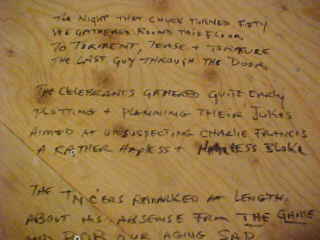 THE NIGHT THAT CHUCK TURNED FIFTY
WE GATHERED ROUND THIS FLOOR
TO TORMENT, TEASE + TORTURE
THE LAST GUY THROUGH THE DOOR
THE CELEBRANTS GATHERED QUITE EARLY
PLOTTING + PLANNING THEIR JOKES
AIMED AT UNSUSPECTING CHARLIE FRANCIS
A RATHER HAPLESS + BLOKE
THE REMARKED AT LENGTH
ABOUT HIS ABSENSE FROM THE GAME
AND OUR AGING